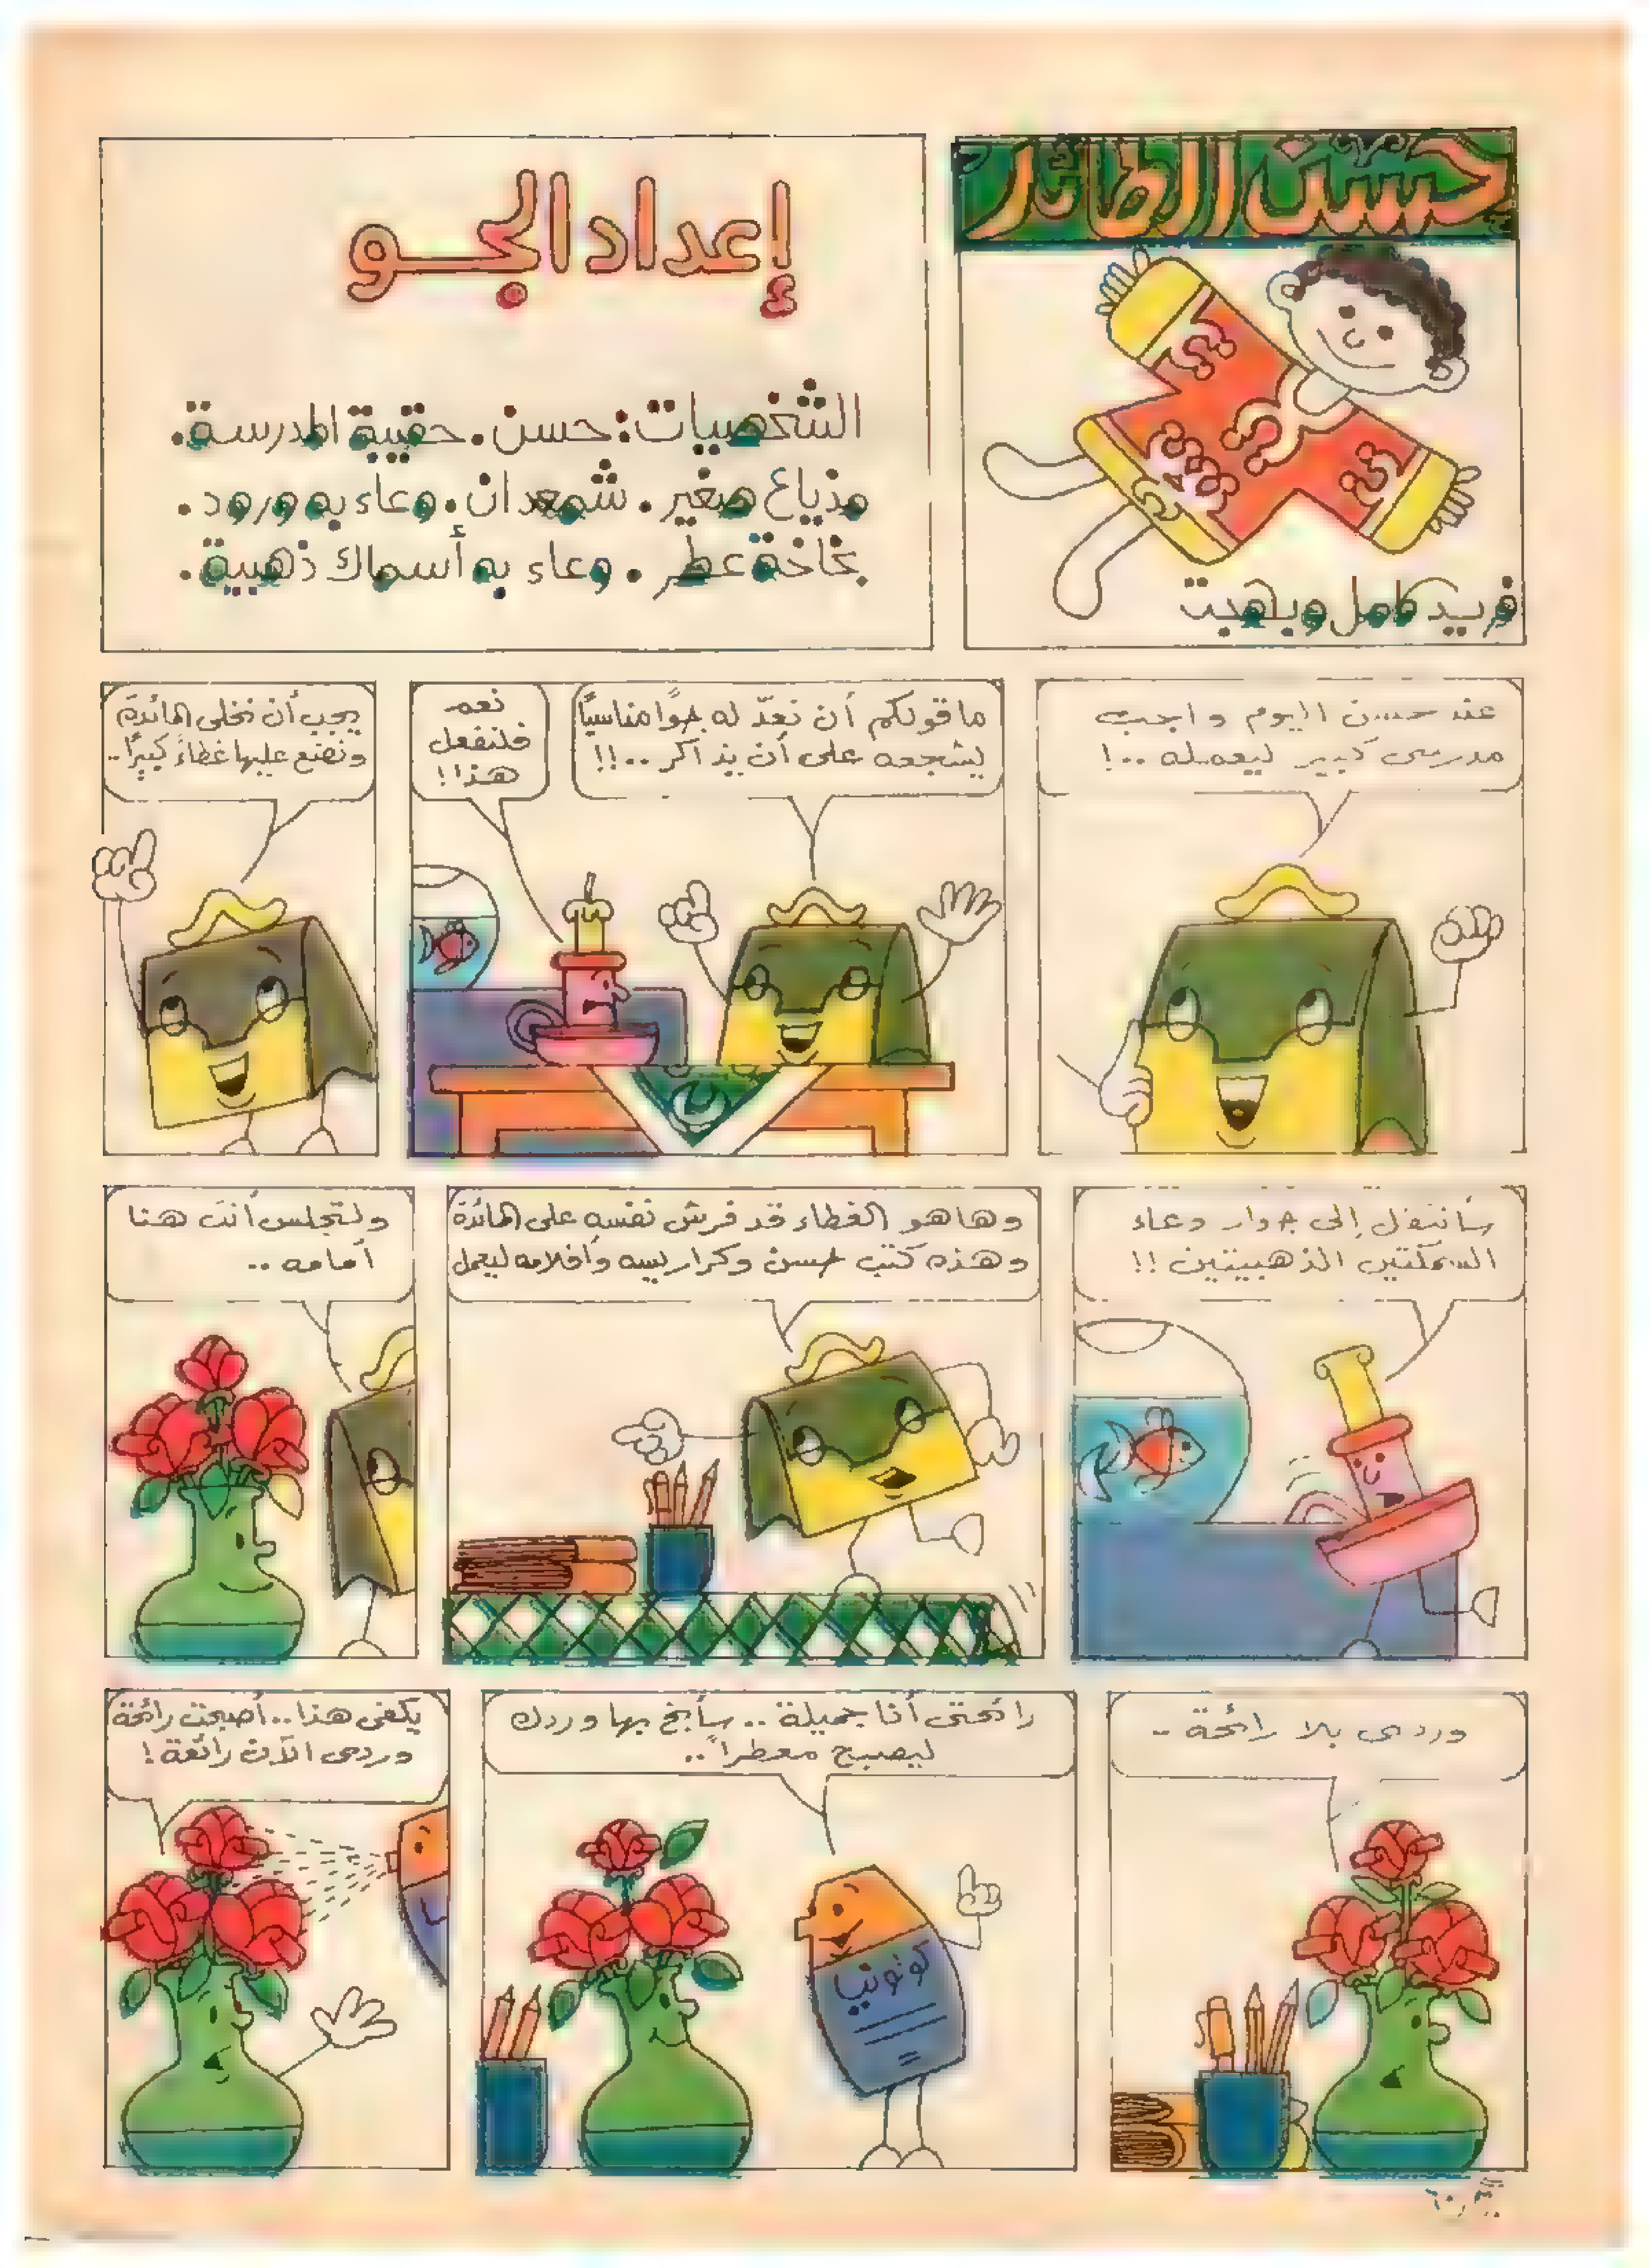 حسن الطائر
فريد كامل وبهجت
إعداد الجو
الشخصيات: حسن. حقيبة المدرسة.
مذياع صغير. شمعدان. وعاء به ورود.
بخاخة عطر. وعاء به أسماك ذهبية.
عند حسن اليوم واجب
مدرسى كبير ليعمله ..!
ما قولكم أن نعدّ له جوًا مناسبًا
يشجعه على أن يذاكر ..!!
نعم
فلنفعل
هذا!!
يجب أن نخلى المائدة
ونضع عليها غطاءً كبيرًا..
سأنتقل إلى جوار وعاء
السمكتين الذهبيتين !!
وهاهو الغطاء قد فرش نفسه على المائدة
وهذه كتب حسن وكراريسه وأقلامه ليعمل
ولتجلس أنت هنا
أمامه ..
وردى بلا رائحة ..
رائحتى أنا جميلة .. سأبخ بها وردك
ليصبح معطراً ..
كولونيا
يكفى هذا.. أصبحت رائحة
وردى الآن رائعة !